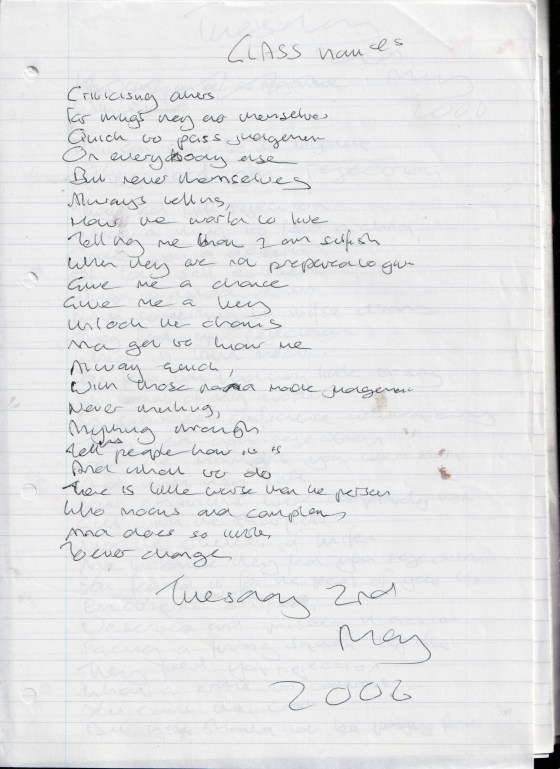 CLASS names
Criticising others
For things they do themselves
Quick to pass judgement
On everybody else
But never themselves
Always telling,
How the world to live
Telling me that I am selfish
When they are not prepared to give
Give me a chance
Give me a key
Unlock the chains
And get to know me
Always quick,
With those made judgement
Never thinking,
Anything through
Tell people how it is
And what to do
There is little worse than the person
Who moans and complains
And does so little
To ever change
Tuesday 2nd
May
2006